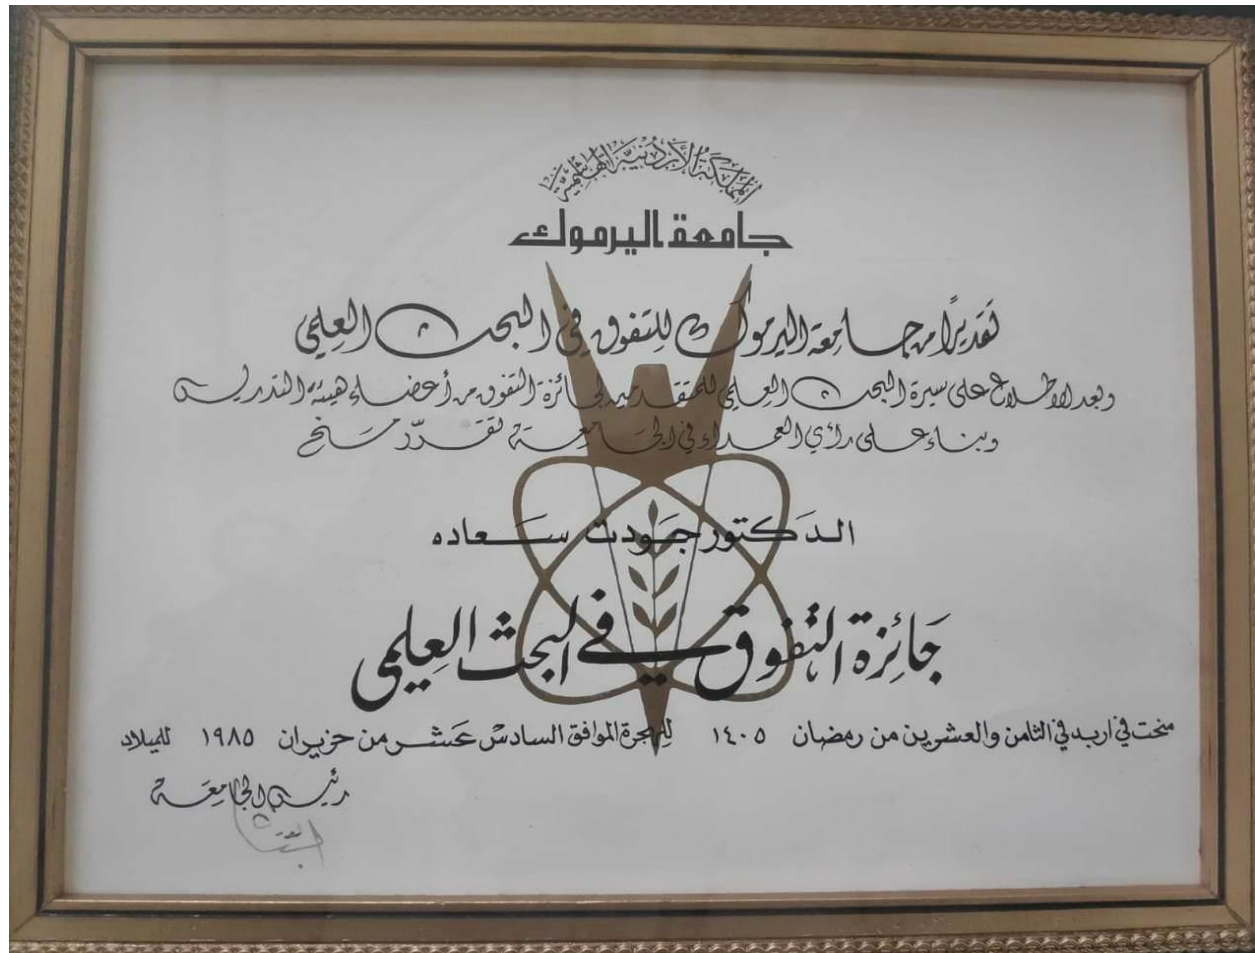 المملكة الأردنية الهاشمية
جامعة اليرموك
تقديرًا من جامعة اليرموك للتفوق في البحث العلمي
وبعد الاطلاع على سيرة البحث العلمي للمتقدمين لجائزة التفوق من أعضاء هيئة التدريس
وبناء على رأي العمداء في الجامعة تقرر منح
الدكتور جودت سعاده
جائزة التفوق في البحث العلمي
منحت في اربد في الثامن والعشرين من رمضان ١٤٠٥ للهجرة الموافق السادس عشر من حزيران ١٩٨٥ للميلاد
رئيس الجامعة